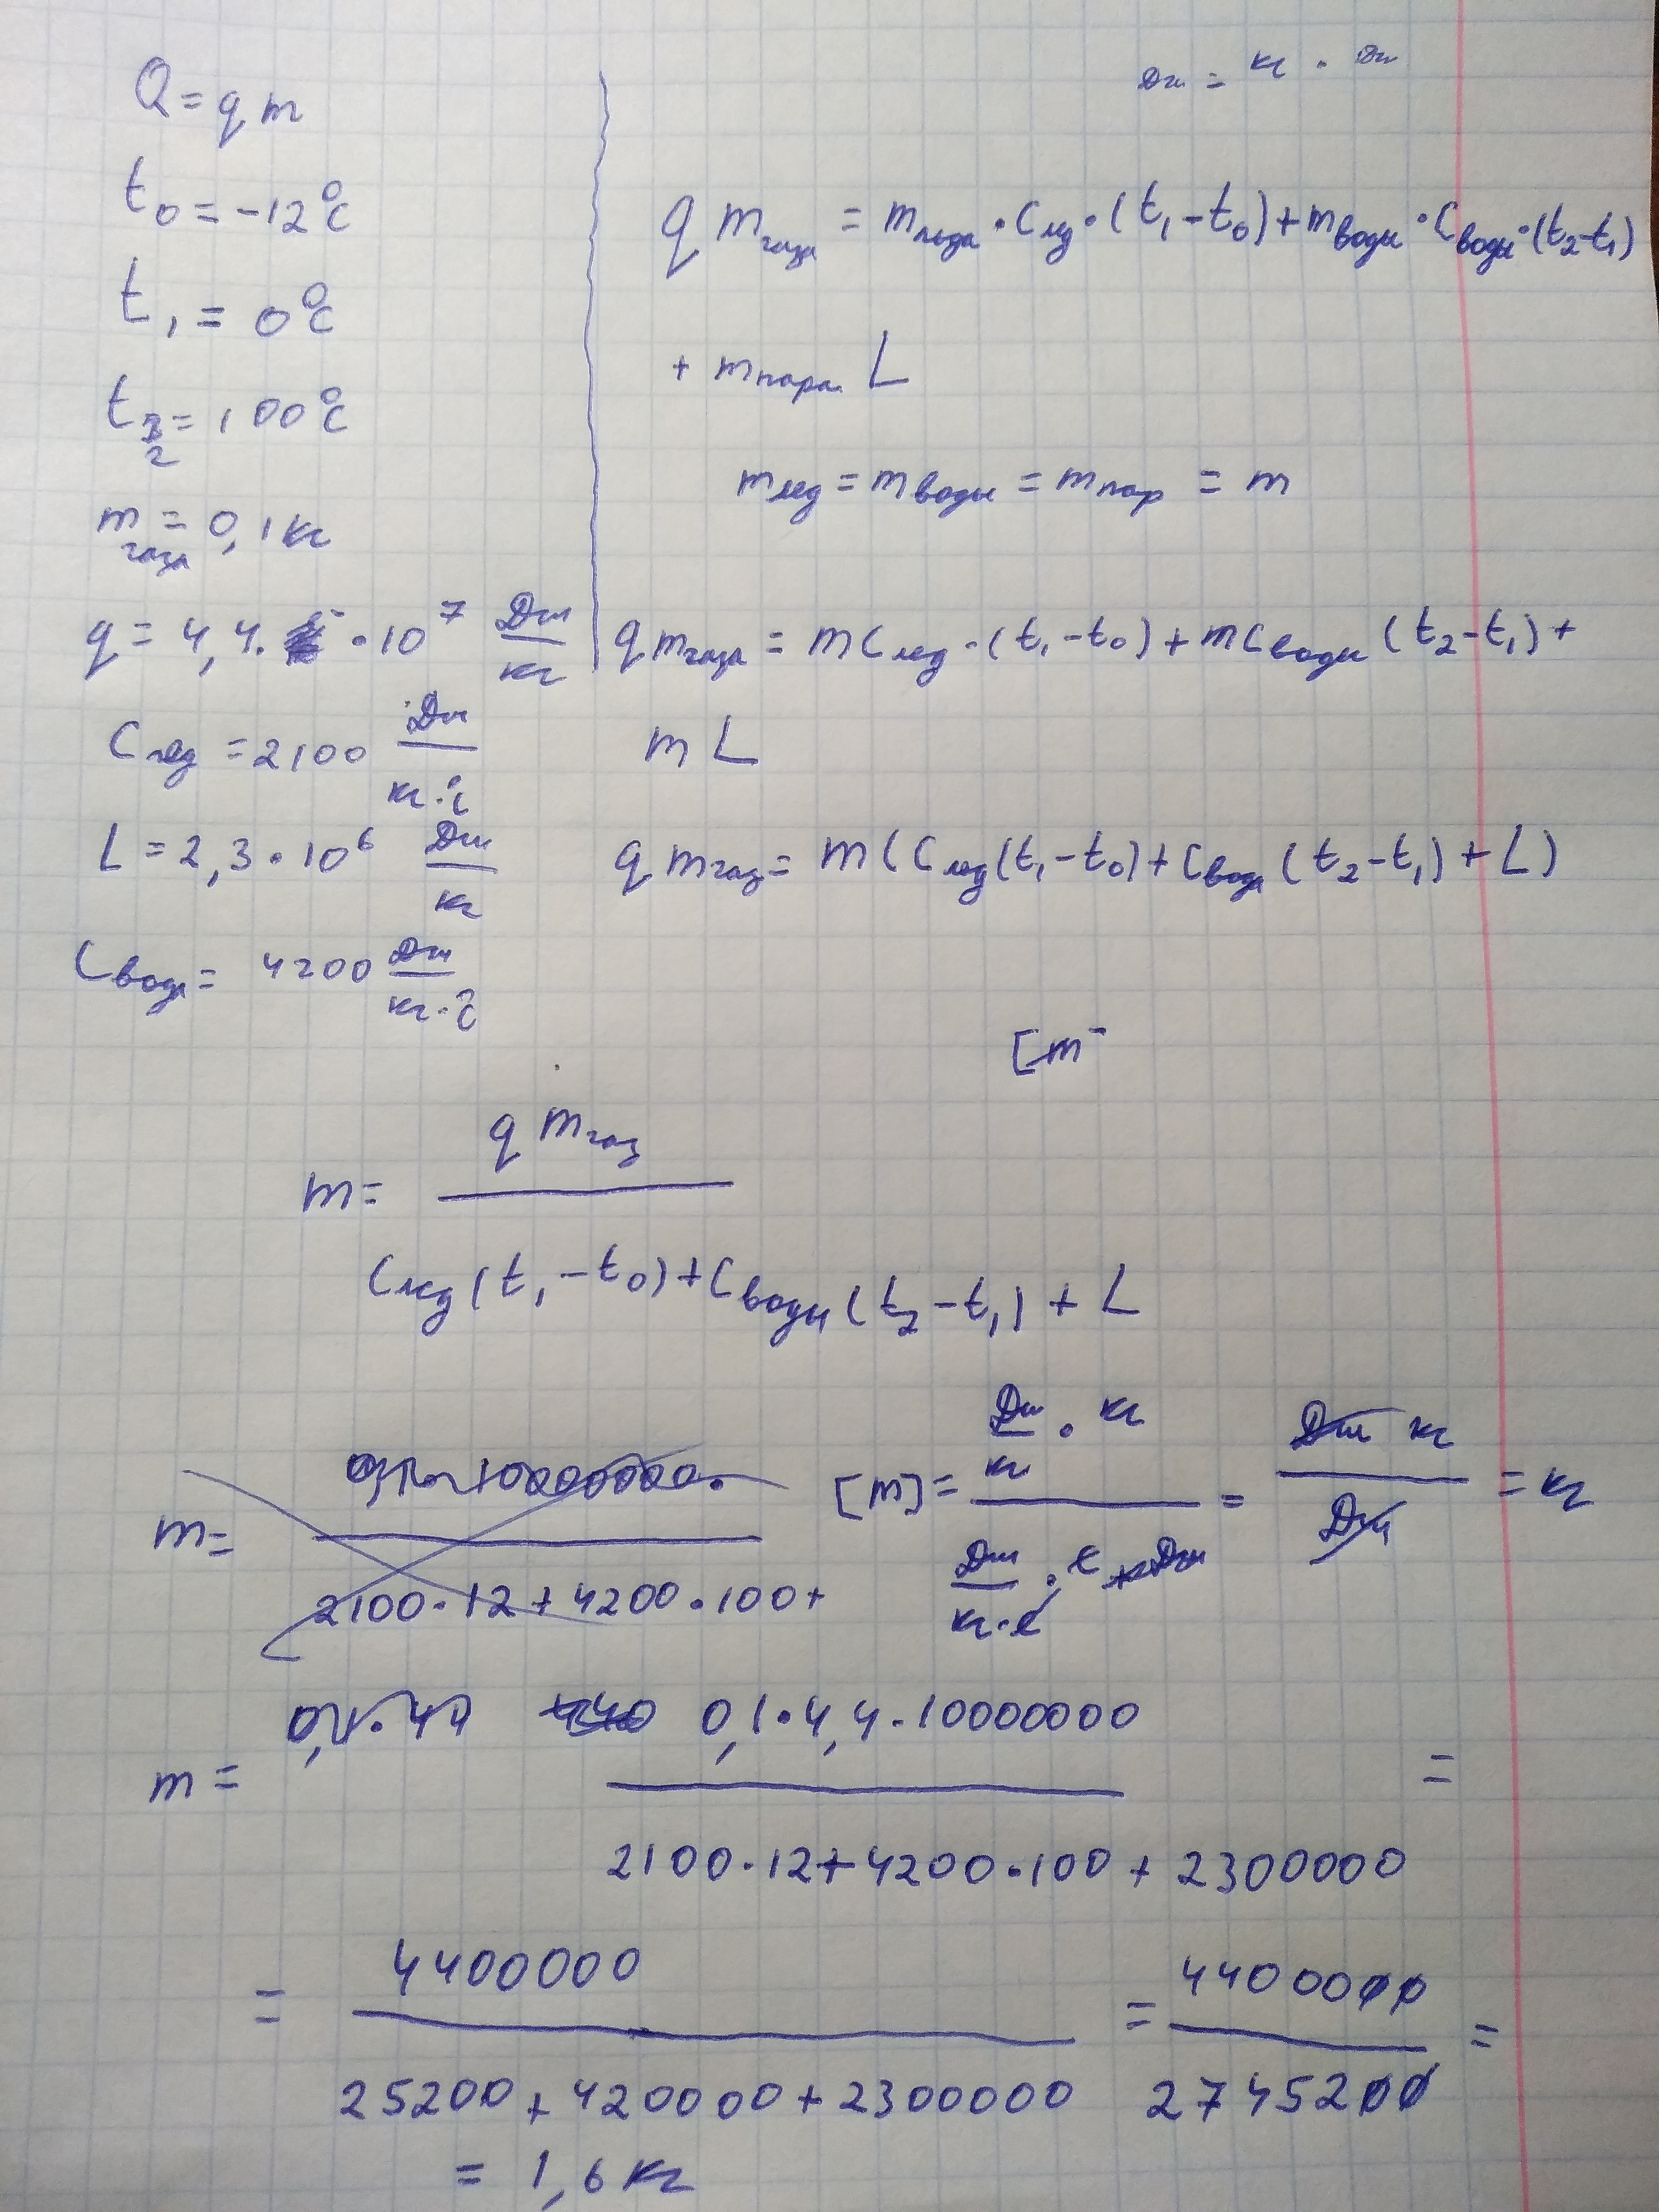 Q = q m
t₀ = -12 °C
t₁ = 0 °C
t₂ = 100 °C
2
m газа = 0,1 кг
q = 4,4 · 10⁷ Дж/кг
C лёд = 2100 Дж/кг·°C
L = 2,3 · 10⁶ Дж/кг
C воды = 4200 Дж/кг·°C
Дж = кг · Дж
q m газа = m льда · C лёд · (t₁ - t₀) + m воды · C воды · (t₂ - t₁)
+ m пара L
m лёд = m воды = m пар = m
q m газа = m C лед · (t₁ - t₀) + m C воды (t₂ - t₁) +
m L
q m газ = m (C лед (t₁ - t₀) + C вода (t₂ - t₁) + L)
[m
m = q m газ / C лед (t₁ - t₀) + C воды (t₂ - t₁) + L
m = / 2100 · 12 + 4200 · 100 +
[m] = Дж/кг · кг / Дж/кг·C · C + Дж = Дж кг / Дж = кг
m = 0,1 · 44 440 0,1 · 4,4 · 10000000 / 2100 · 12 + 4200 · 100 + 2300000 =
= 4400000 / 25200 + 420000 + 2300000 = 4400000 / 2745200 =
= 1,6 кг